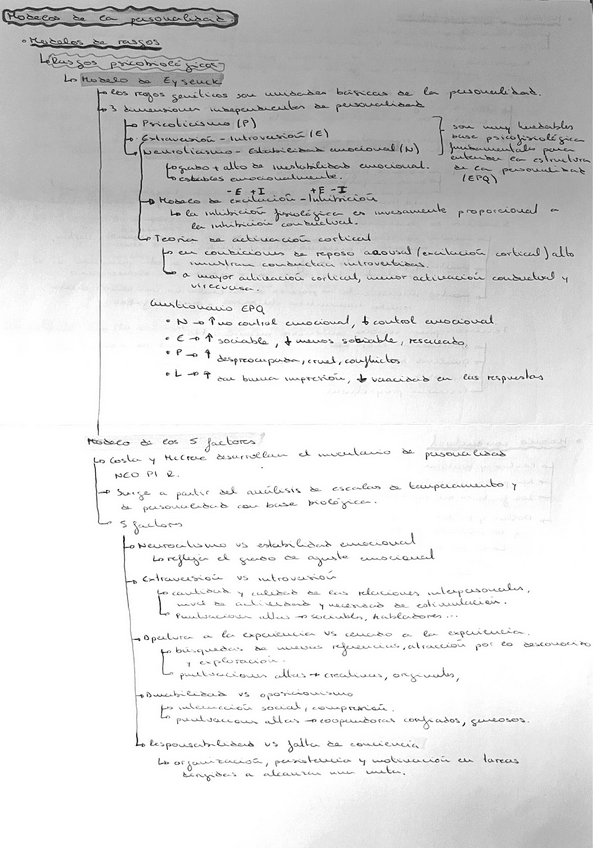 Modelos de la personalidad
• Modelos de rasgos
Rasgos psicobiológicos
Modelo de Eysenck
los rasgos genéticos son unidades básicas de la personalidad.
3 dimensiones independientes de personalidad
Psicoticismo (P)
Extraversión - Introversión (E)
Neuroticismo - Estabilidad emocional (N)
son muy heredables
base psicofisiológica
fundamentales para
entender la estructura
de la personalidad
(EPQ)
grado + alto de inestabilidad emocional.
estables emocionalmente.
- E + I
+ E - I
Modelo de excitación - Inhibición
la inhibición fisiológica es inversamente proporcional a
la inhibición conductual.
Teoría de activación cortical
en condiciones de reposo arousal (excitación cortical) alto
muestran conductas introvertidas.
a mayor activación cortical, menor activación conductual y
viceversa.
Cuestionario EPQ
• N → ↑ no control emocional, ↓ control emocional
• E → ↑ sociable, ↓ menos sociable, reservado
• P → ↑ despreocupado, cruel, conflictos
• L → ↑ dar buena impresión, ↓ veracidad en las respuestas
Modelo de los 5 factores
Costa y McCrae desarrollan el inventario de personalidad
NEO PI R.
Surge a partir del análisis de escalas de temperamento y
de personalidad con base biológica.
5 factores
Neuroticismo vs estabilidad emocional
refleja el grado de ajuste emocional
Extraversión vs introversión
cantidad y calidad de las relaciones interpersonales,
nivel de actividad y necesidad de estimulación.
Puntuaciones altas → sociables, habladores...
Apertura a la experiencia vs cerrado a la experiencia.
búsquedas de nuevas referencias, atracción por lo desconocido
y exploración.
puntuaciones altas → creativas, originales,
Amabilidad vs oposicionismo
interacción social, compresión.
puntuaciones altas → cooperadoras confiados, generosos.
Responsabilidad vs falta de conciencia
organización, persistencia y motivación en tareas
dirigidas a alcanzar una meta.